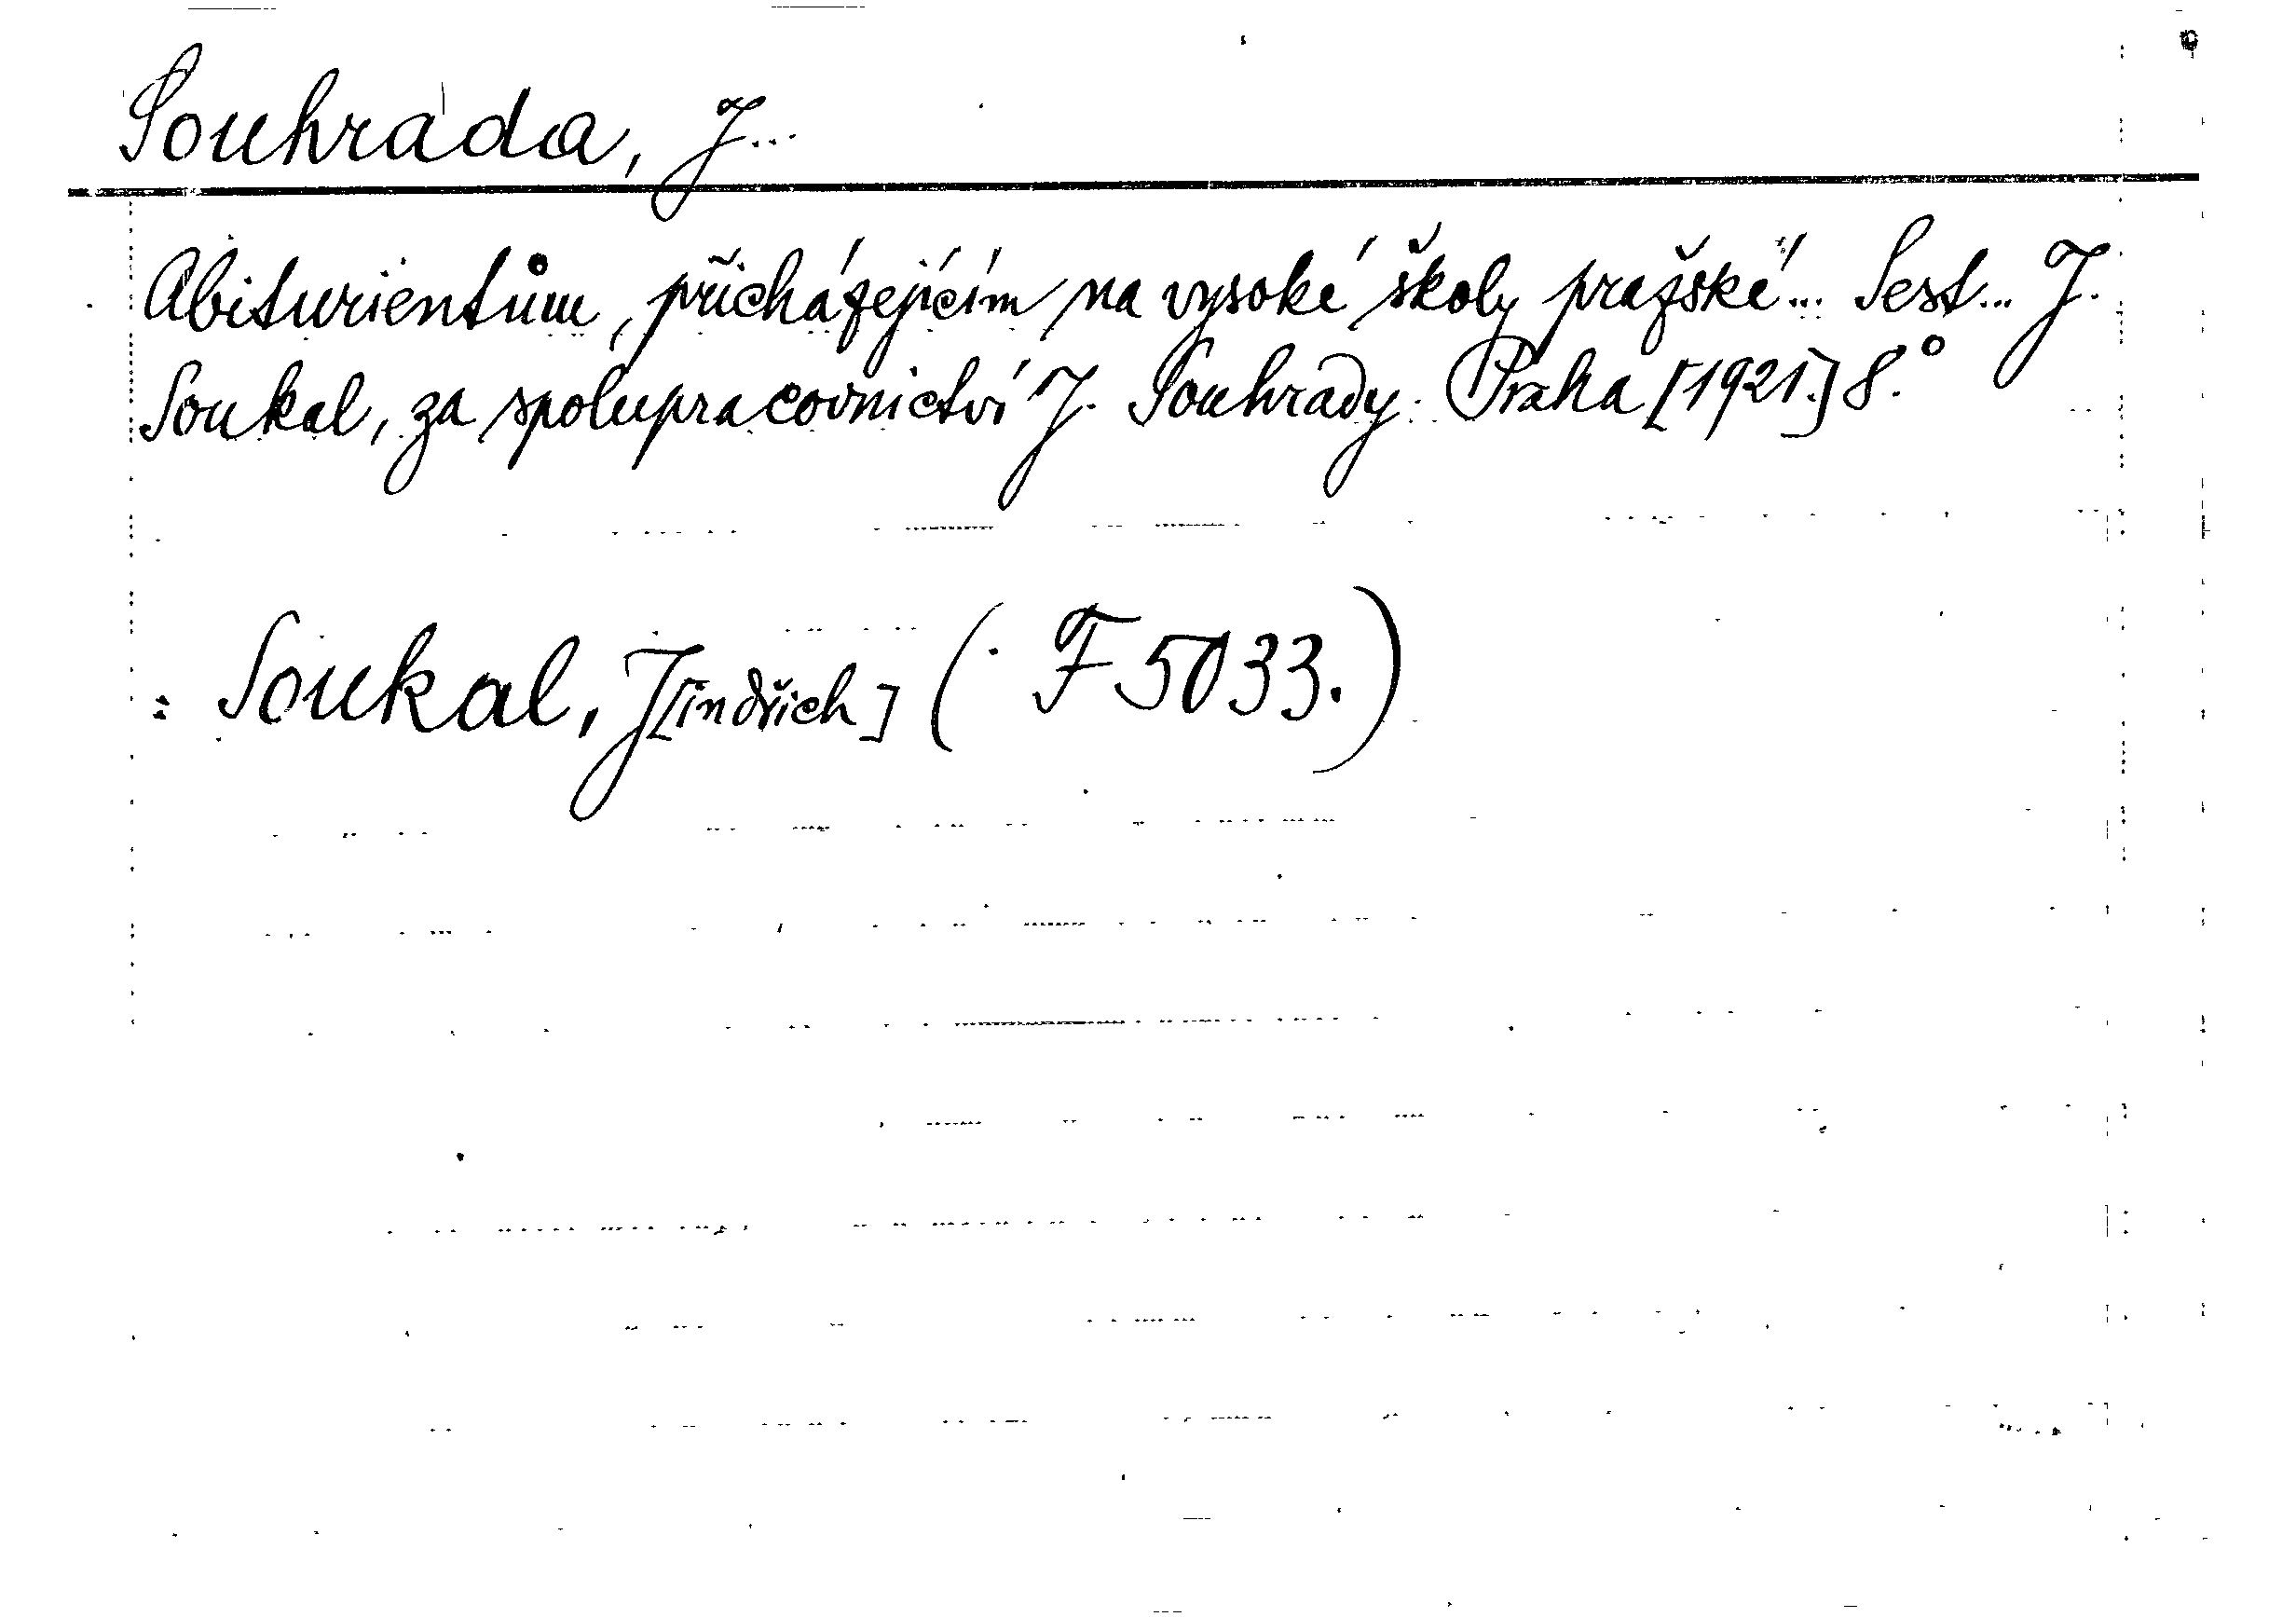 Souhrada, J...
Abiturientům, přicházejícím na vysoké školy pražské... Sest... J.
Soukal, za spolupracovnictví J. Souhrady. Praha [1921.] 8.°
: Soukal, J[indřich] (F 5033.)